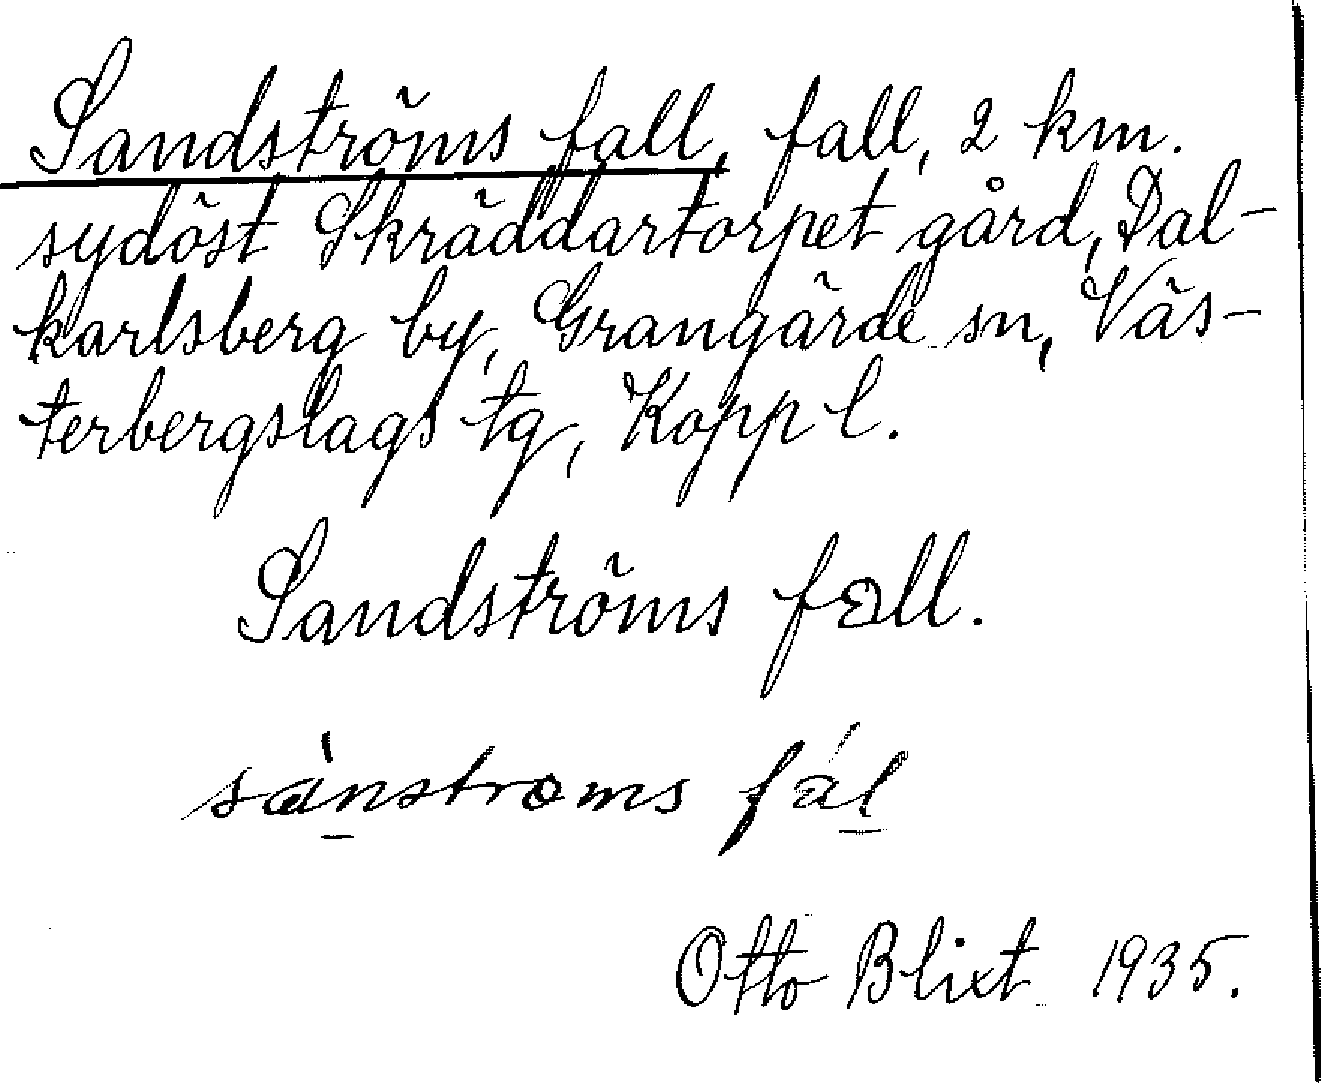 Sandströms fall, fall, 2 km.
sydöst Skräddartorpet gård, Dal-
karlsberg by, Grangärde sn, Väs-
terbergslags tg, Kopp l.
Sandströms fall.
sánstroms fál
Otto Blixt 1935.